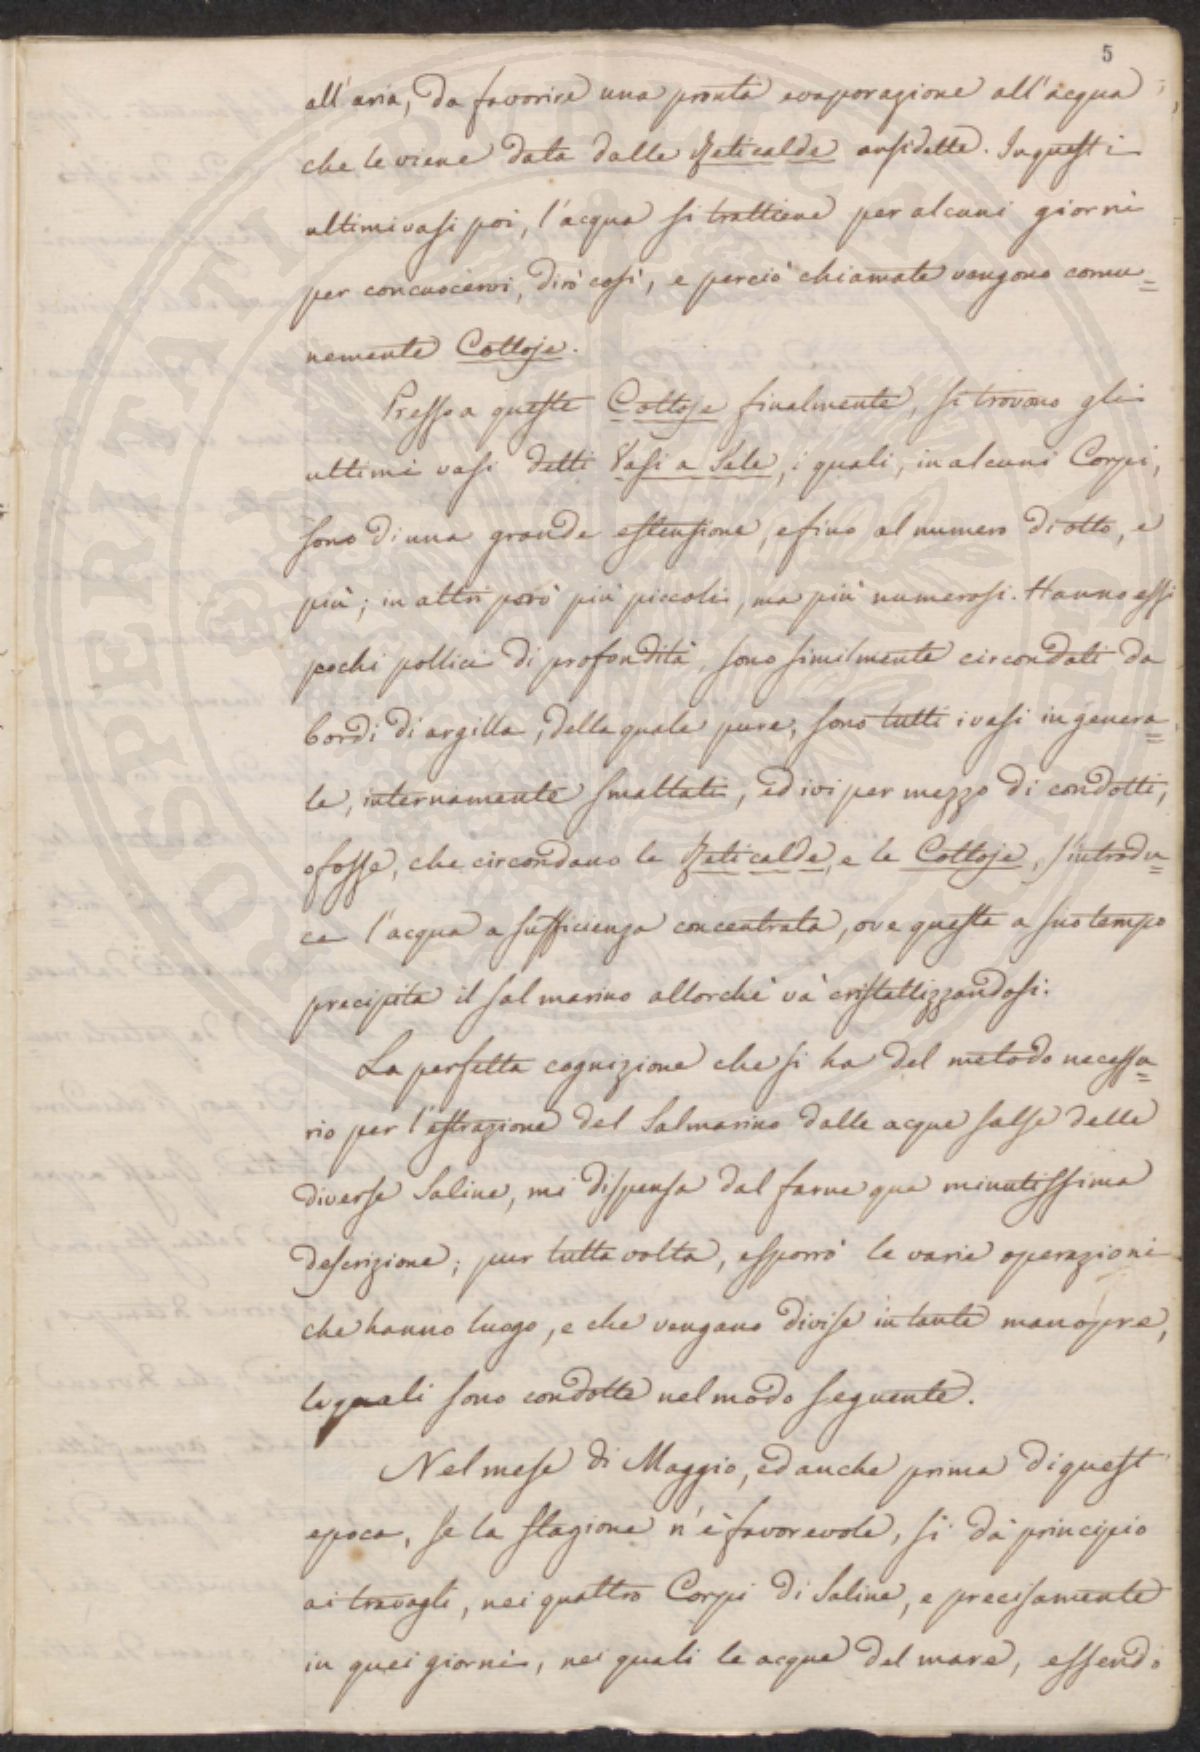 5
all'aria, da favorire una pronta evaporazione all'acqua
che le viene data dalle Reticalde ansidette. In questi
ultimi vasi poi, l'acqua si trattiene per alcuni giorni
per concuocervi, dirò così, e perciò chiamate vengono comu=
nemente Cottoje.
Presso a queste Cottoje finalmente, si trovano gli
ultimi vasi detti Vasi a Sale, i quali, in alcuni Corpi,
sono di una grande estensione, e fino al numero di otto, e
più; in altri però più piccoli, ma più numerosi. Hanno essi
pochi pollici di profondità, sono similmente circondati da
bordi di argilla, della quale pure, sono tutti i vasi in genera=
le, internamente smaltati, ed ivi per mezzo di condotti,
o fosse, che circondano le Reticalde, e le Cottoje, s'introdu=
ce l'acqua a sufficienza concentrata, ove questa a suo tempo
precipita il sal marino allorché và cristallizzandosi.
La perfetta cognizione che si ha del metodo necessa=
rio per l'estrazione del Salmarino dalle acque salse delle
diverse Saline, mi dispensa dal farne qua minutissima
descrizione; pur tutta volta, esporrò le varie operazioni
che hanno luogo, e che vengano divise in tante manopre,
le quali sono condotte nel modo seguente.
Nel mese di Maggio, ed anche prima di quest'
epoca, se la stagione n'è favorevole, si dà principio
ai travagli, nei quattro Corpi di Saline, e precisamente
in quei giorni, nei quali le acque del mare, essendo
PROSPERITATI PUBLICAE